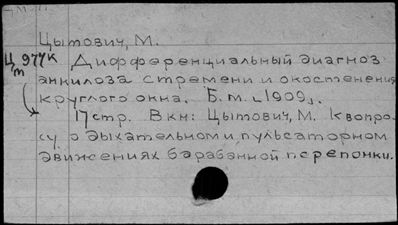 Цытович, М.
Ц 977к Дифференциальный диагноз
т анкилоза стремени и окостенения
круглого окна. Б.м. [1909].
17 стр. В кн: Цытович, М. К вопро-
су о дыхательном и пульсаторном
движениях барабанной перепонки.